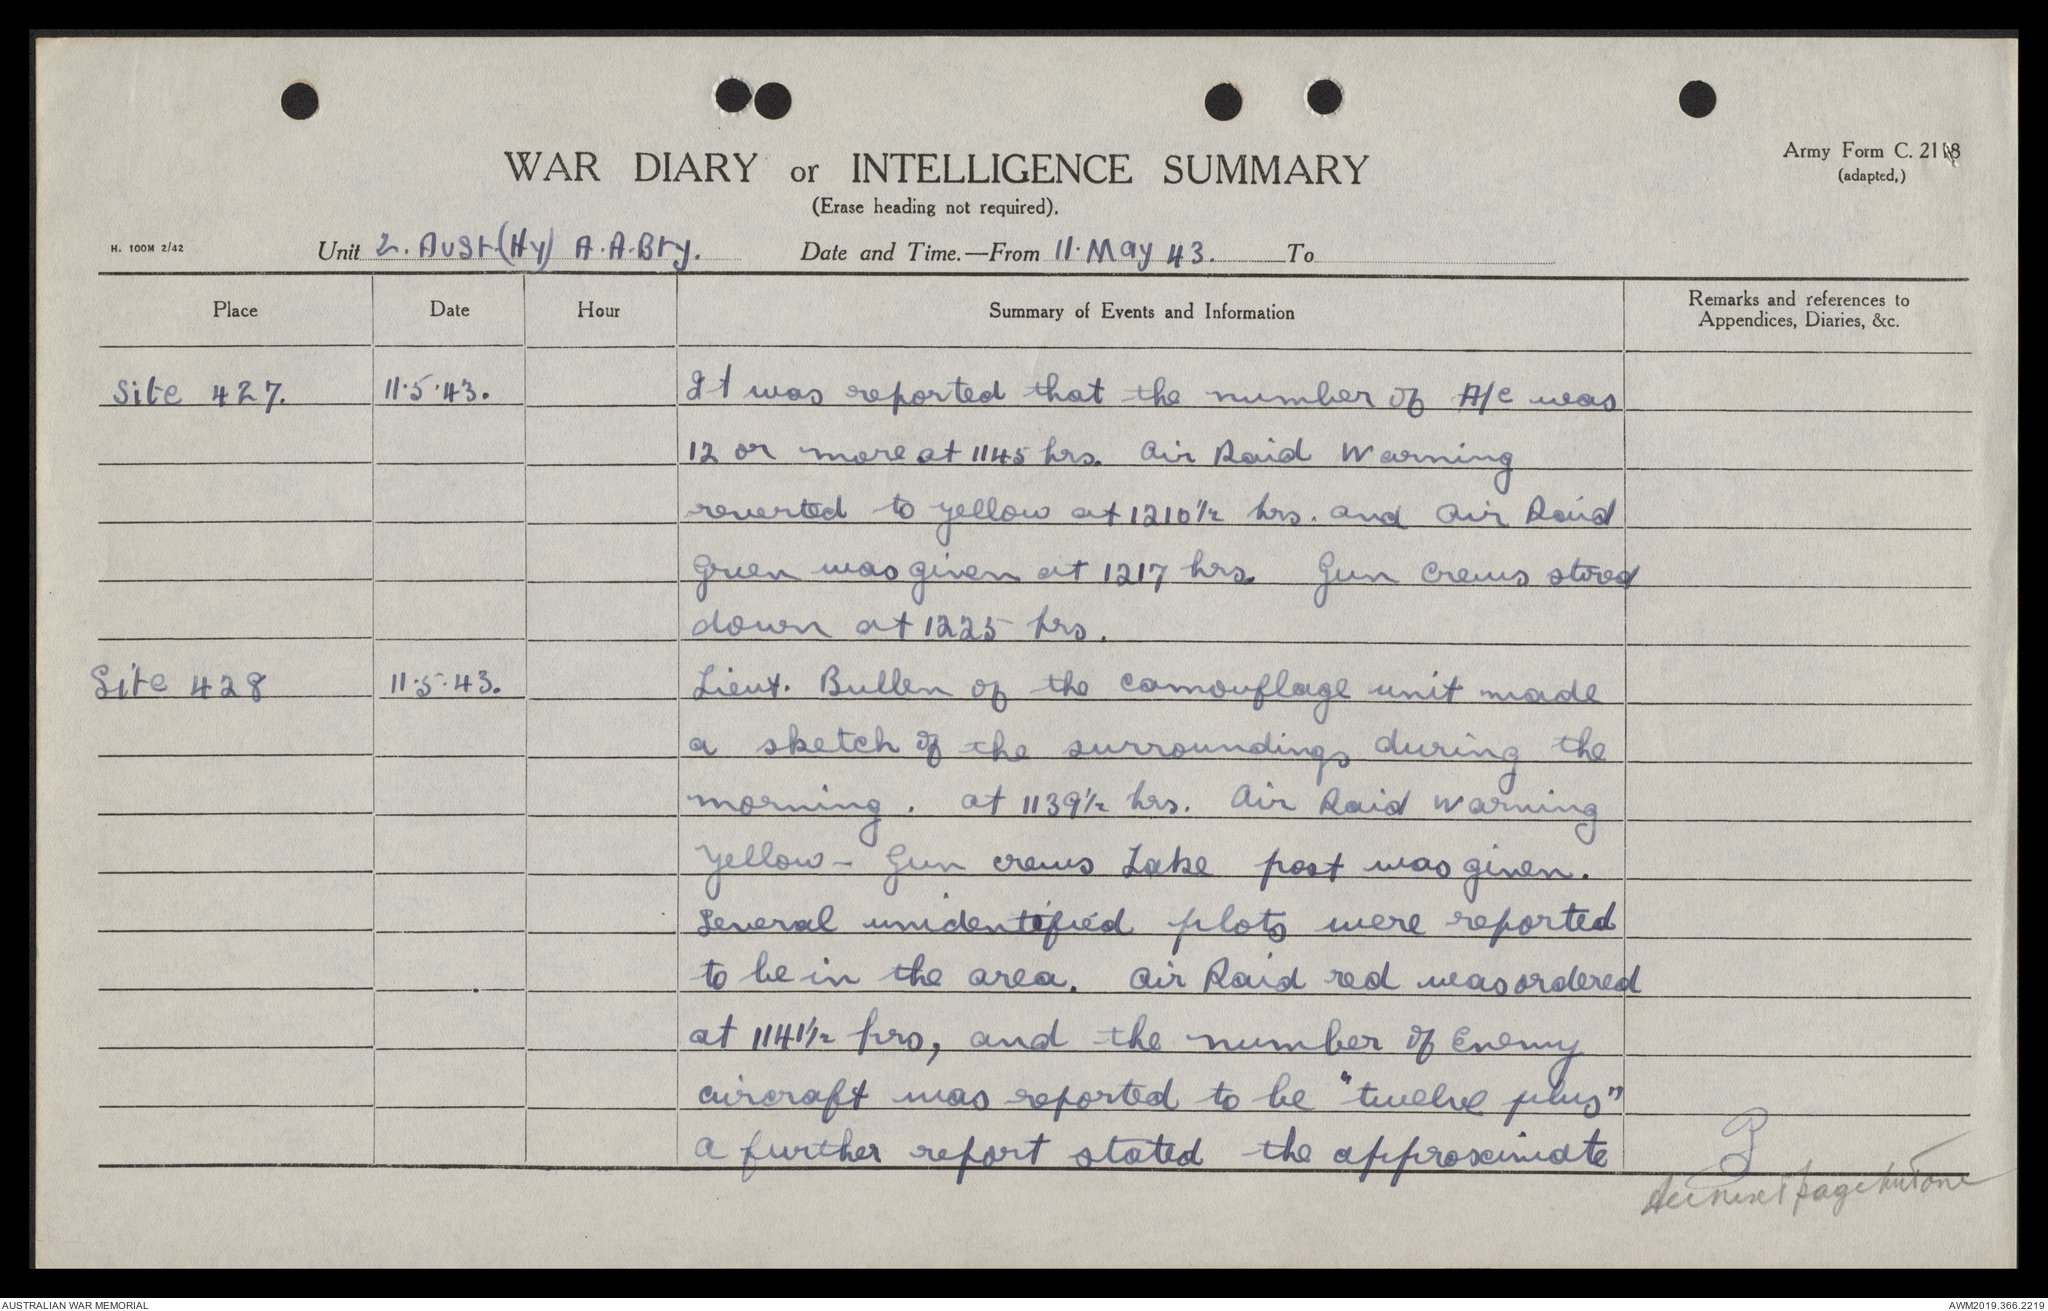 WAR DIARY or INTELLIGENCE SUMMARY
Army Form C. 2118
(adapted,)
(Erase heading not required).
H. 100M 2/42
Unit 2. Aust (Hy) A.A. Bty.
Date and Time.—From 11. May 43. To
Place Date Hour Summary of Events and Information Remarks and references to
Appendices, Diaries, &c.
Site 427. 11.5.43. It was reported that the number of A/c was
12 or more at 1145 hrs. Air Raid Warning
reverted to yellow at 1210½ hrs. and Air Raid
Green was given at 1217 hrs. Gun Crews stood
down at 1225 hrs.
Site 428 11.5.43. Lieut. Bullen of the camouflage unit made
a sketch of the surroundings during the
morning. At 1139½ hrs. Air Raid Warning
Yellow - Gun crews Take post was given.
Several unidentified plots were reported
to be in the area. Air Raid red was ordered
at 1141½ hrs, and the number of Enemy
aircraft was reported to be "twelve plus"
A further report stated the approximate
next page but one
AUSTRALIAN WAR MEMORIAL
AWM2019.366.2219